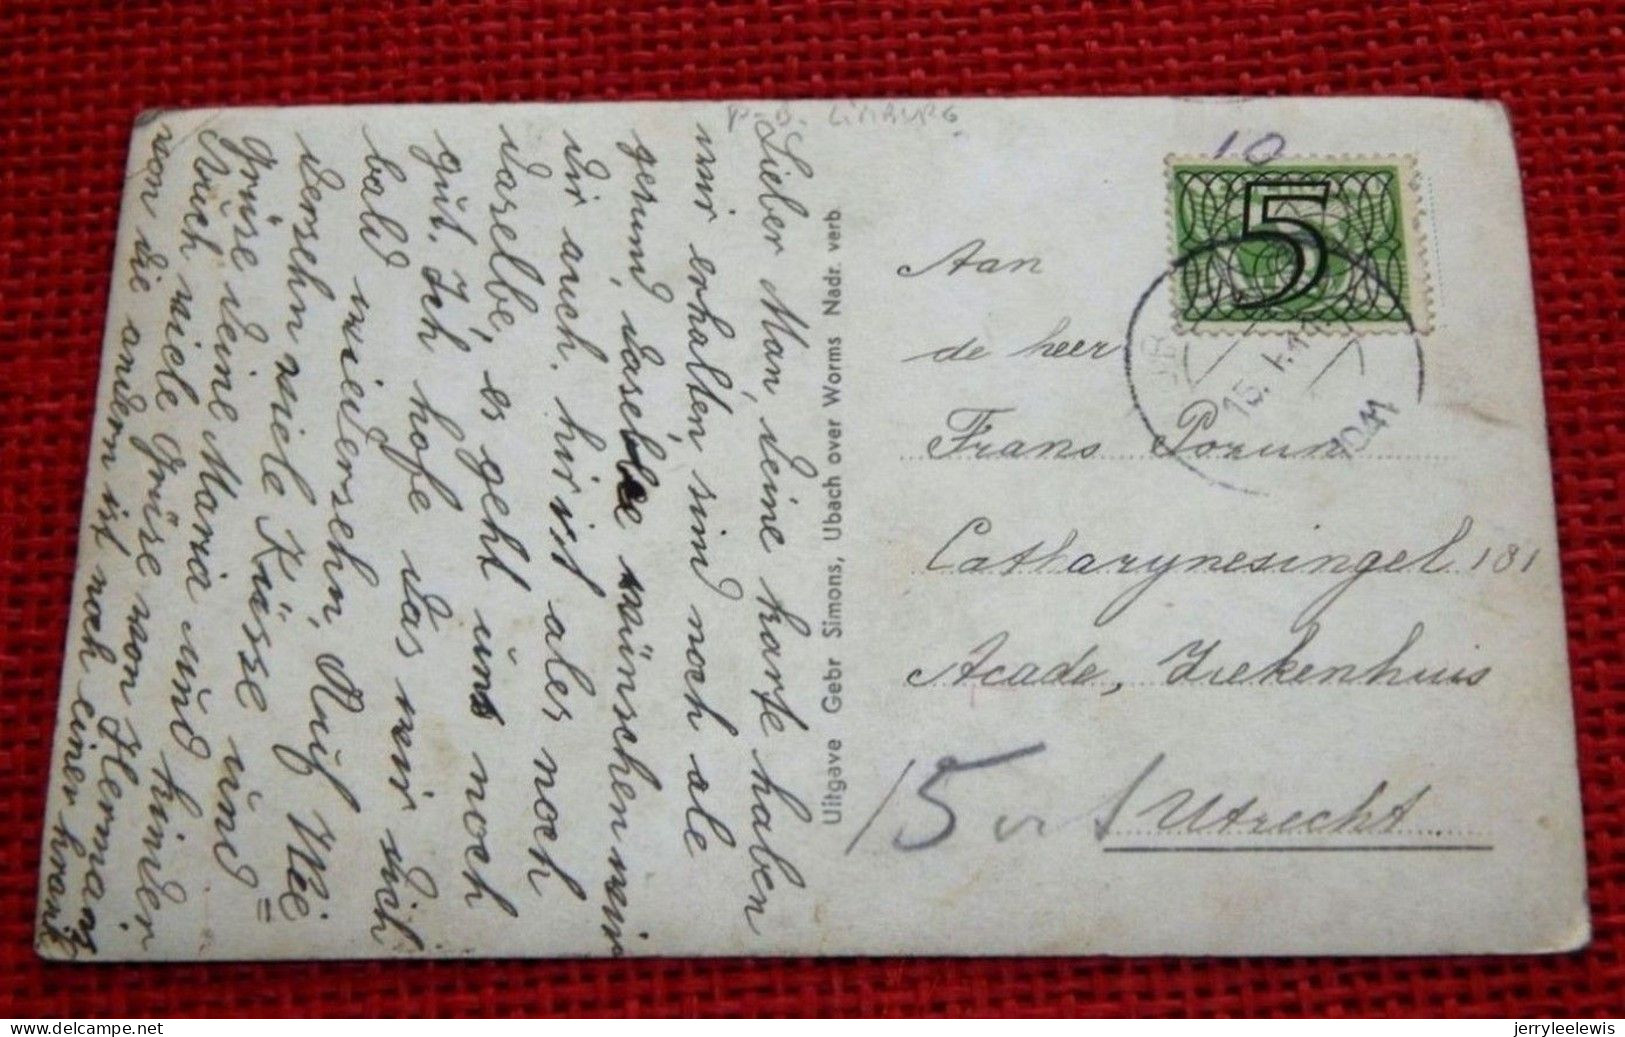 P.B. LIMBURG.
Lieber Man, deine karte haben
wir erhalten sind noch ale
gesund, daselbe wünschen wir
dir auch. hir ist ales noch
daselbe, es geht uns noch
gut. Ich hofe das wir dich
bald wiedersehn, Auf Wie
dersehn viele Küsse und =
grüse deine Maria und kinder
Auch viele Grüse von Herman
von die andern ist noch einer krank
Uitgave Gebr Simons, Ubach over Worms Nadr. verb.
10
5
15.
1941
Aan
de heer
Frans Porun
Catharynesingel 181
Acade, Ziekenhuis
Utrecht
15
delcampe.net
jerryleelewis